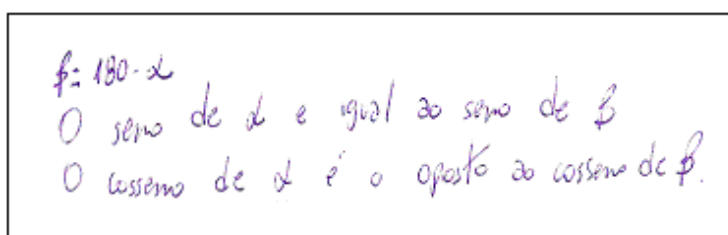 β = 180 - α
O seno de α e igual ao seno de β
O cosseno de α é o oposto ao cosseno de β.